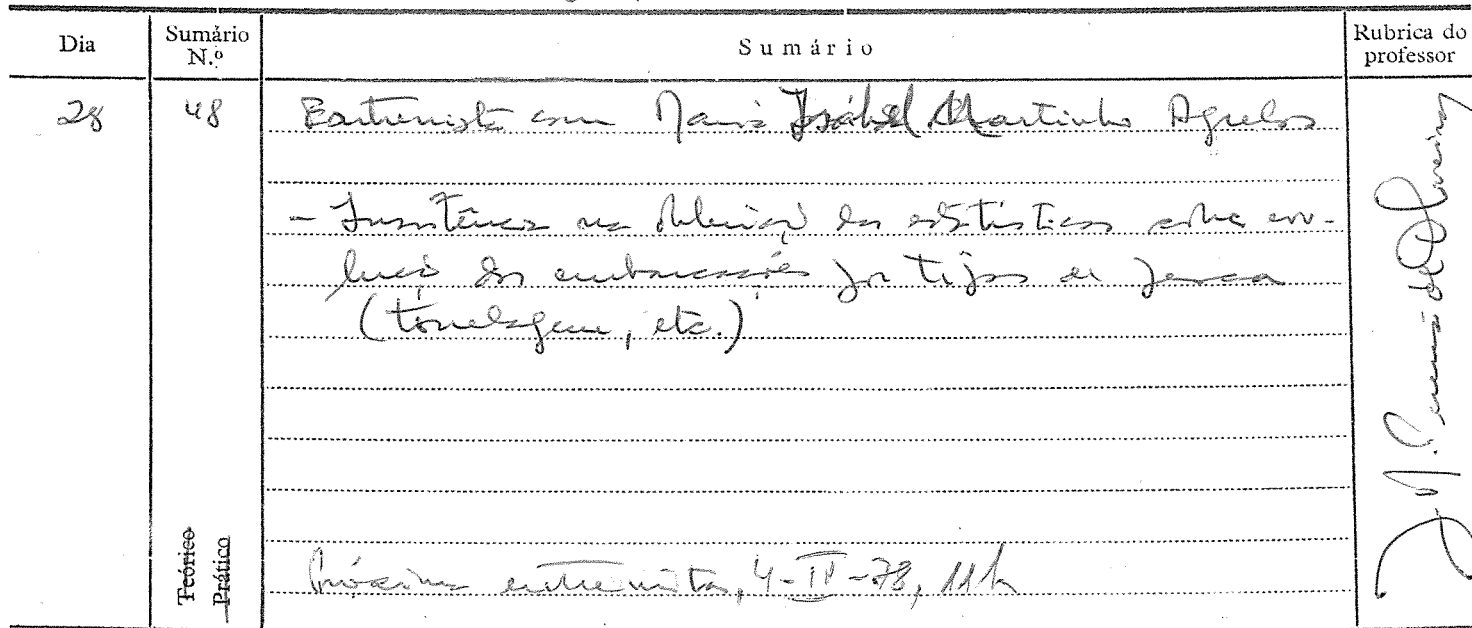 Dia
Sumário N.º
Sumário
Rubrica do professor
28
48
Entrevista com Maria Isabel Martinho Agrelos
- Insistência na obtenção das estatísticas sobre evo-
lução das embarcações por tipos de pesca
(tonelagem, etc.)
Teórico
Prático
Próxima entrevista, 4-IV-78, 11h